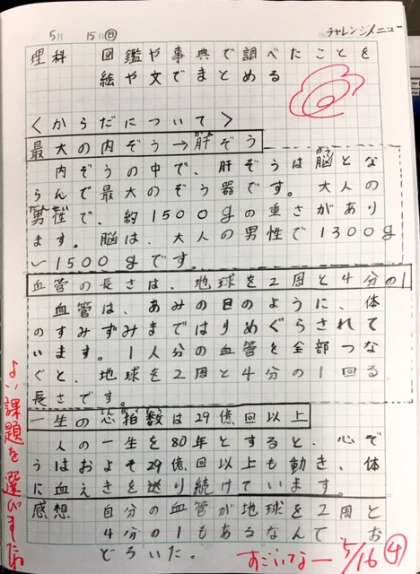 5月 15日㊐ チャレンジメニュー
理科 図鑑や事典で調べたことを
絵や文でまとめる
<からだについて>
最大の内ぞう→肝ぞう
内ぞうの中で、肝ぞうは脳とな
らんで最大のぞう器です。大人の
男性で、約1500gの重さがあり
ます。脳は、大人の男性で1300g
〜1500gです。
血管の長さは、地球を2周と4分の1
血管は、あみの目のように、体
のすみずみまではりめぐらされて
います。1人分の血管を全部つな
ぐと、地球を2周と4分の1回る
長さです。
一生の心拍数は29億回以上
人の一生を80年とすると、心ぞ
うはおよそ29億回以上も動き、体
に血えきを送り続けています。
感想 自分の血管が地球を2周と
4分の1もあるなんて お
どろいた。
よい課題を選びましたね
すごいなー 5/16 ④